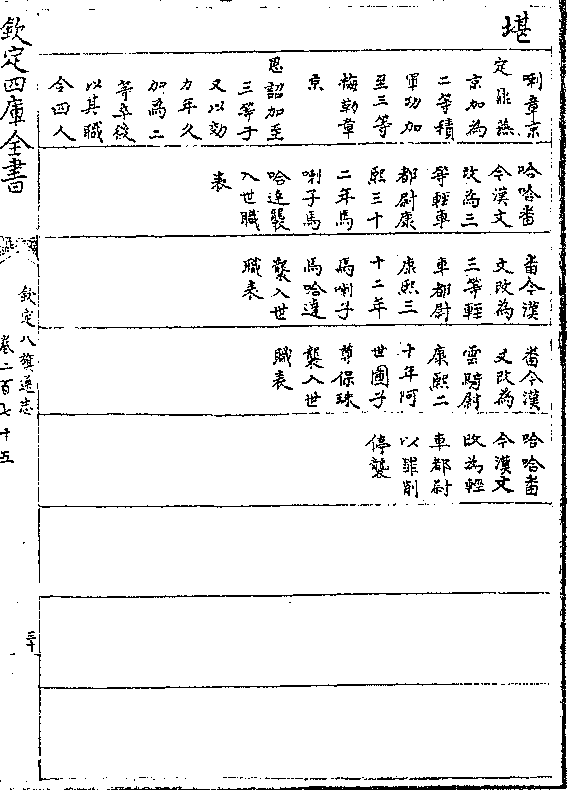 堪
喇章京
定鼎燕
京加為
二等積
軍功加
至三等
梅勒章
京
恩詔加至
三等子
又以効
力年久
加為二
等卒後
以其職
令四人
哈哈畨
今漢文
改為三
等輕車
都尉康
熙三十
二年馬
喇子馬
哈達襲
入世職
表
畨今漢
文改為
三等輕
車都尉
康熙三
十二年
馬喇子
馬哈達
襲入世
職表
畨今漢
文改為
雲騎尉
康熙二
十年阿
世圖子
尊保珠
襲入世
職表
哈哈畨
今漢文
改為輕
車都尉
以罪削
停襲
欽定四庫全書
欽定八旗通志
卷二百七十五
三十